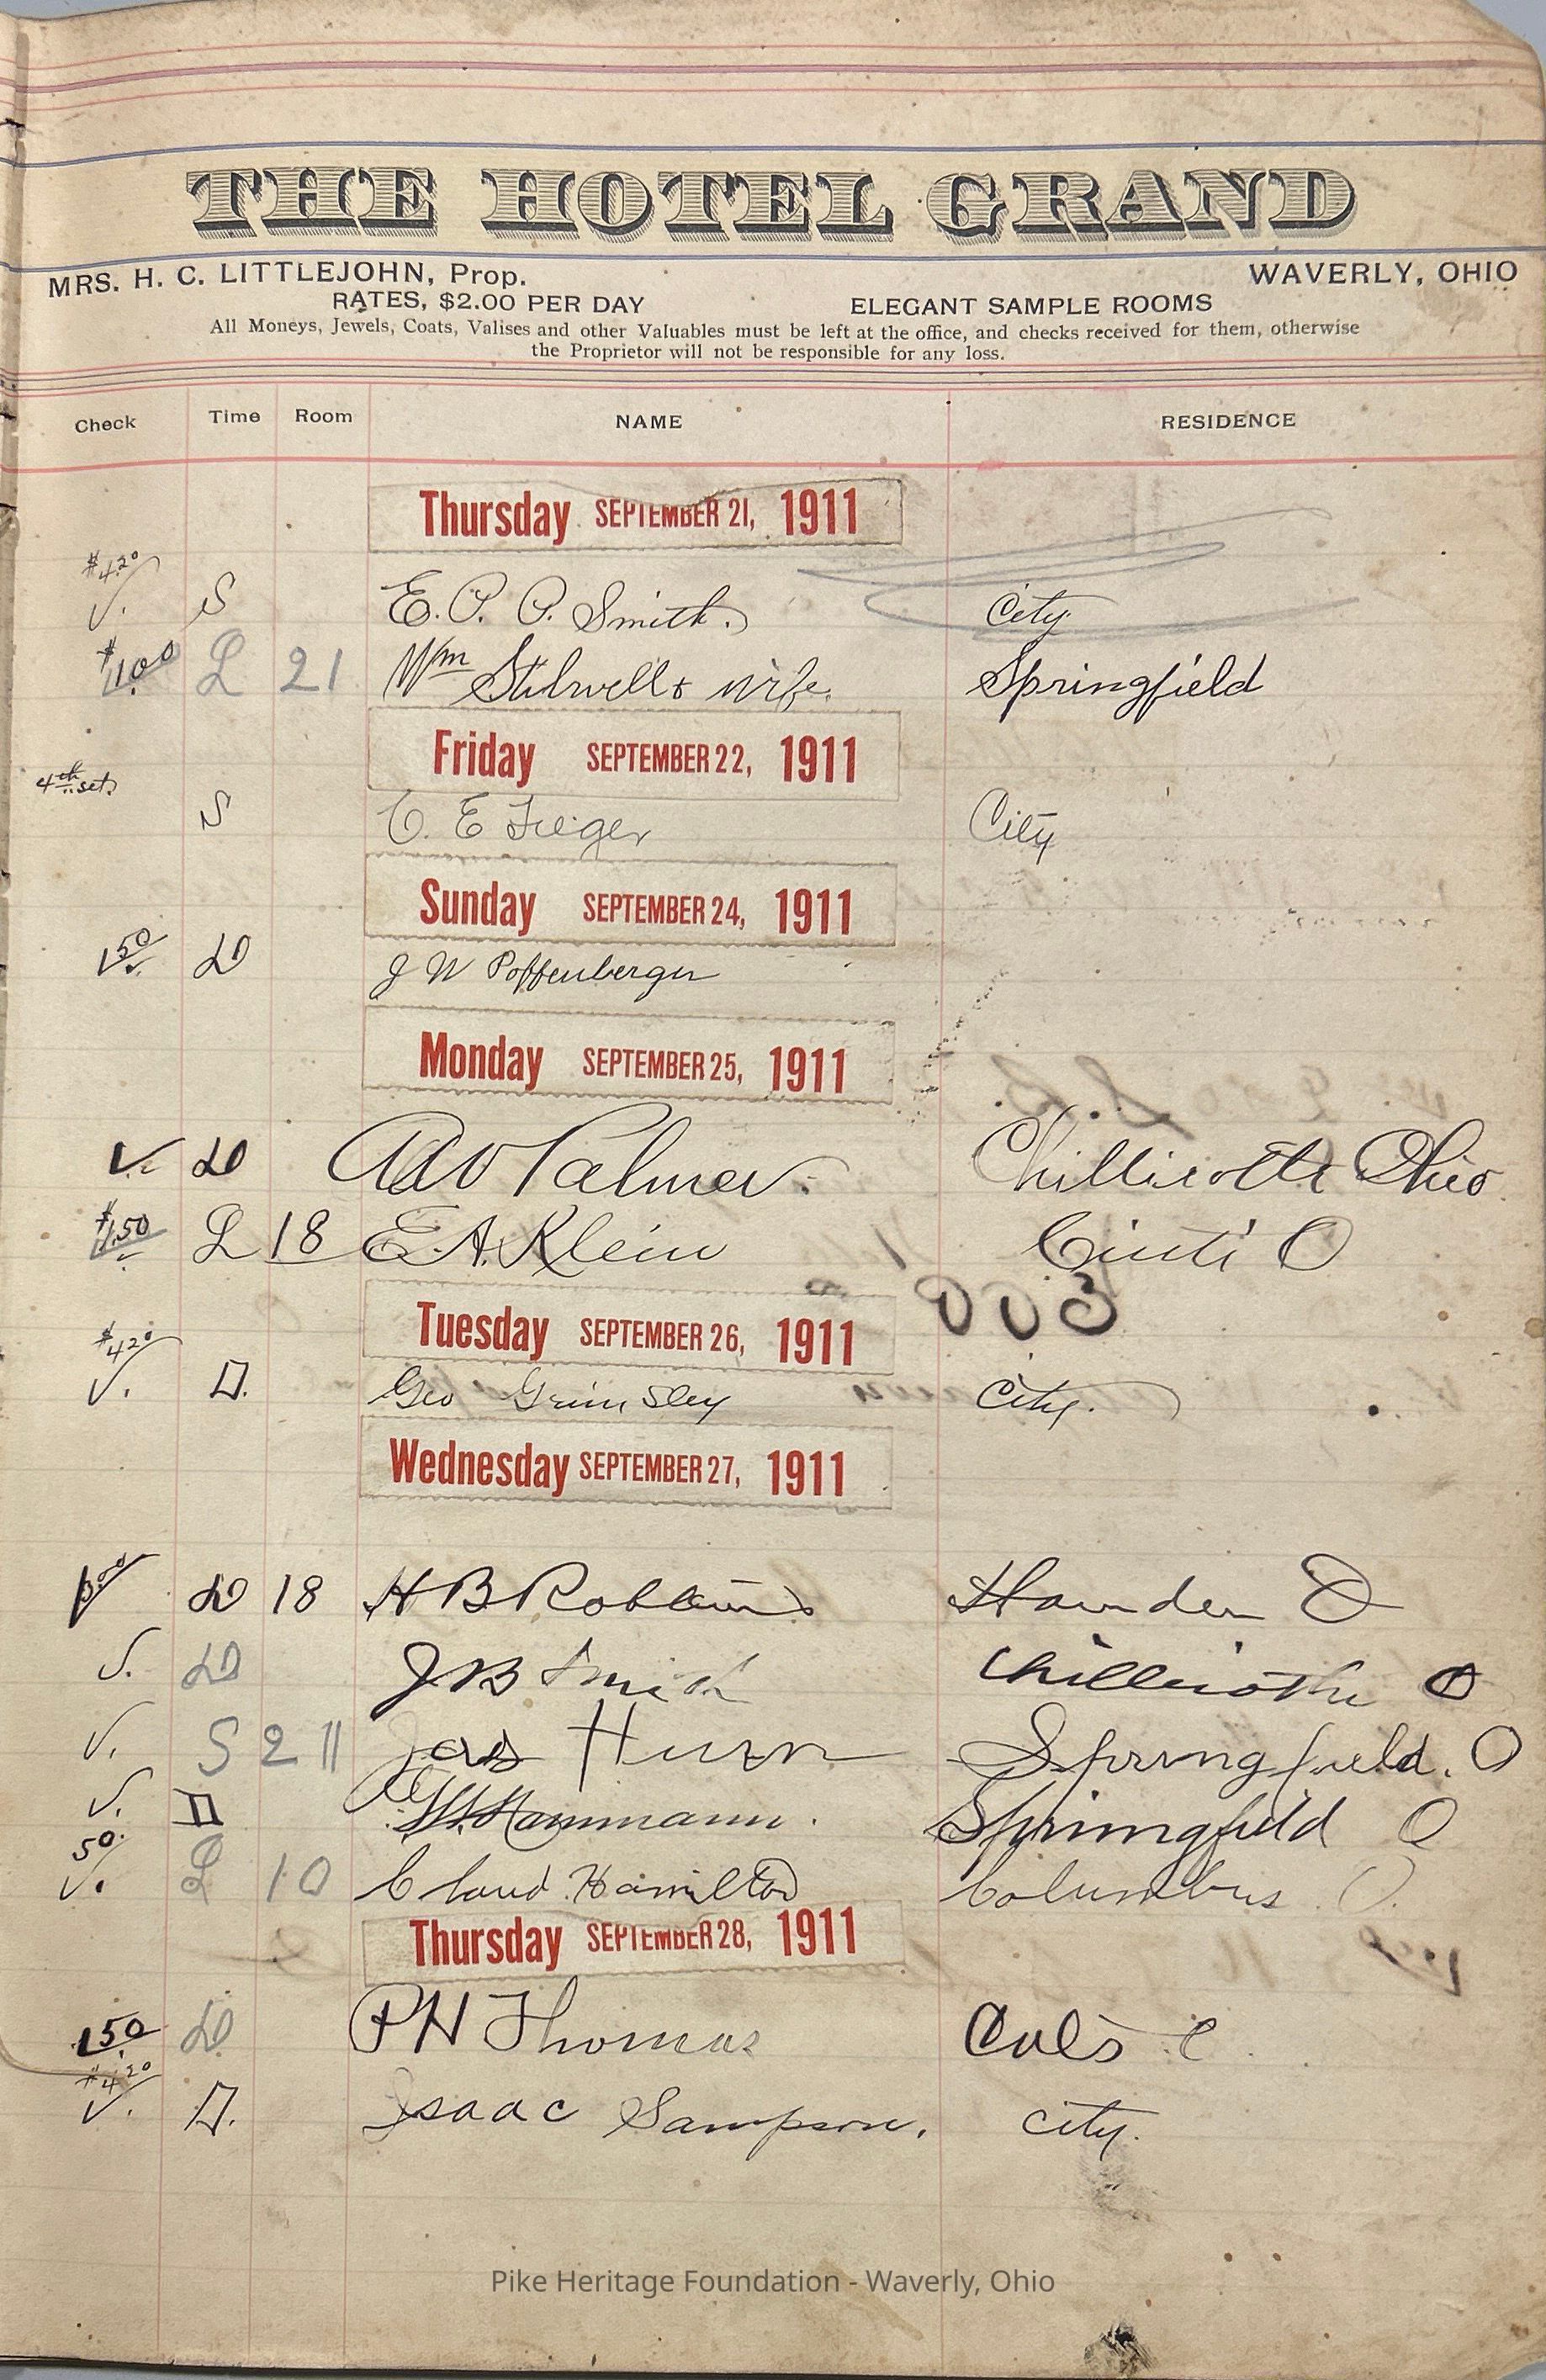 THE HOTEL GRAND
MRS. H. C. LITTLEJOHN, Prop. WAVERLY, OHIO
RATES, $2.00 PER DAY ELEGANT SAMPLE ROOMS
All Moneys, Jewels, Coats, Valises and other Valuables must be left at the office, and checks received for them, otherwise
the Proprietor will not be responsible for any loss.
Check Time Room NAME RESIDENCE
Thursday SEPTEMBER 21, 1911
$4.20
S E. P. P. Smith. City
$1.00 L 21 Wm Stilwell & wife. Springfield
Friday SEPTEMBER 22, 1911
4th set.
S C. E City
Sunday SEPTEMBER 24, 1911
1.50 LD J W Poffenberger
Monday SEPTEMBER 25, 1911
LD Palmer. Chillicothe Ohio
$1.50 L 18 E. A. Klein Cinti O
Tuesday SEPTEMBER 26, 1911
$4.20
D. Geo Grimsley City.
Wednesday SEPTEMBER 27, 1911
LD 18 H B Robbins O
LD J B Smith Chillicothe O
S 2 11 Jas Hurn Springfield. O
D Hammann. Springfield O
50.
L 10 Claud Hamilton Columbus O.
Thursday SEPTEMBER 28, 1911
1.50 LD P H Thomas Cols
$4.20
D. Isaac Sampson. City.
Pike Heritage Foundation - Waverly, Ohio